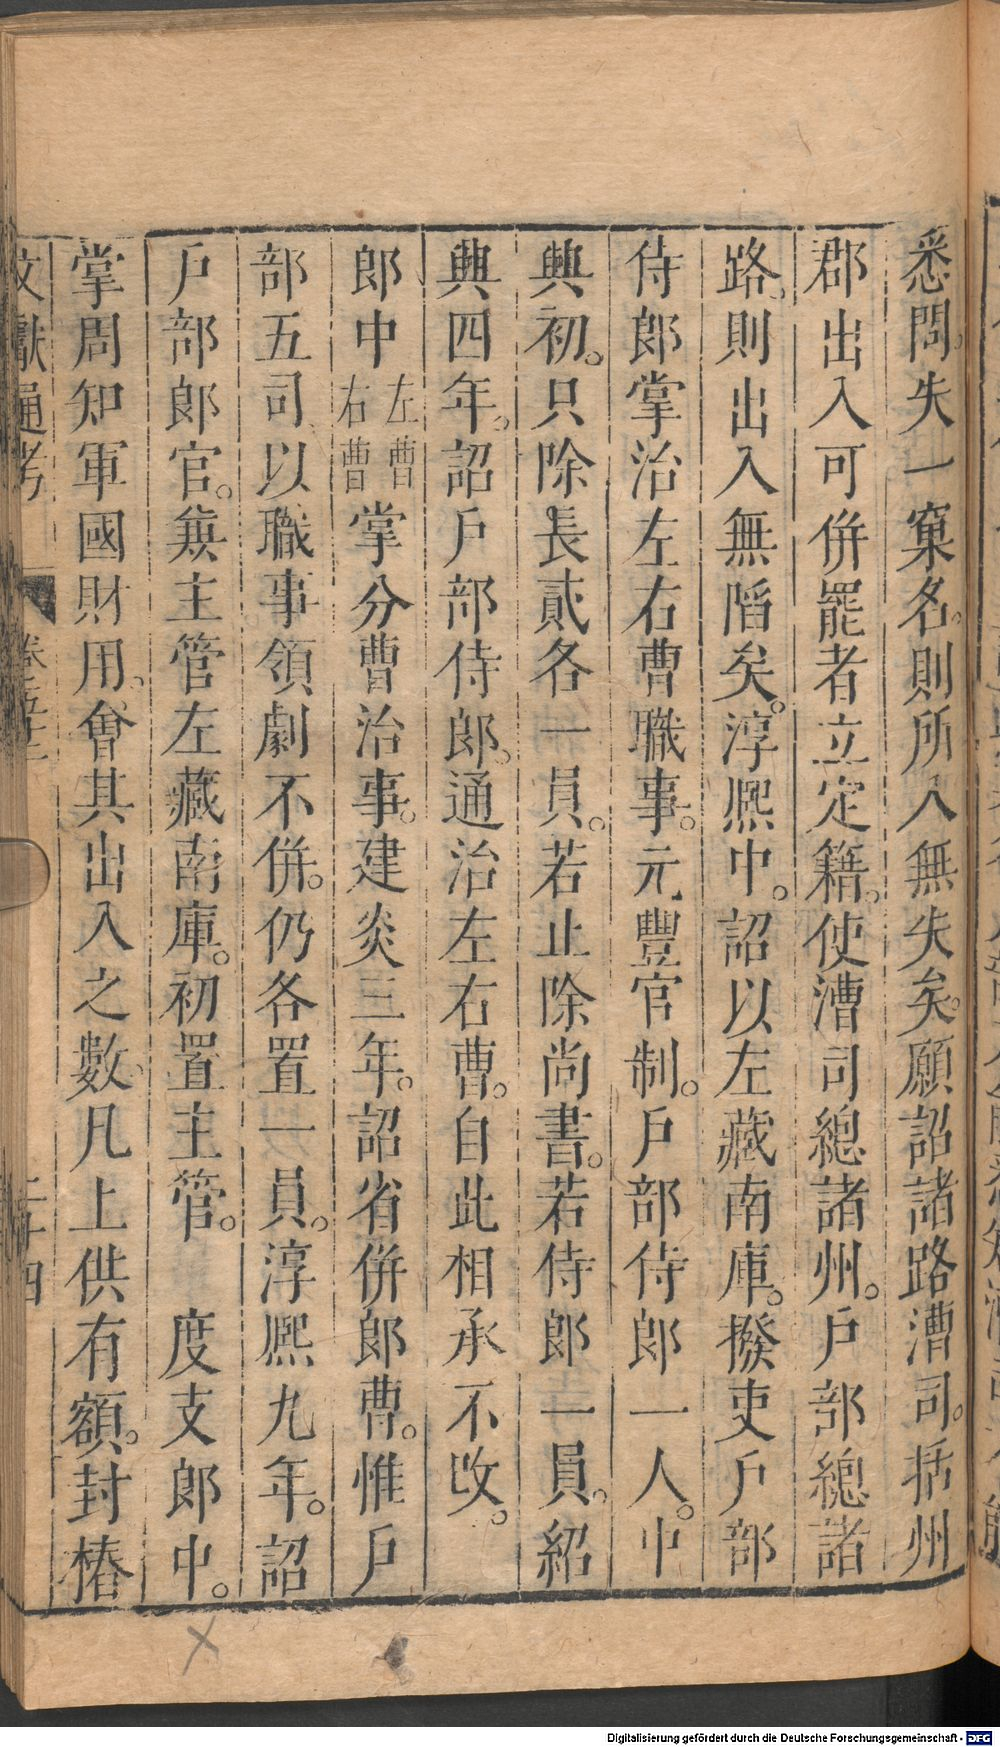 悉問。失一窠名。則所入無失矣。願詔諸路漕司。括州
郡出入可併罷者立定籍。使漕司總諸州。戶部總諸
路、則出入無滔矣。淳熙中。詔以左藏南庫。撥吏戶部
侍郎掌治左右曹職事。元豐官制。戶部侍郎一人。中
興初。只除長貳各一員。若止除尚書。若侍郎一員。紹
興四年。詔戶部侍郎。通治左右曹。自此相承不改。
郎中左曹右曹掌分曹治事。建炎三年。詔省併郎曹。惟戶
部五司以職事領劇不併。仍各置一員。淳熙九年。詔
戶部郎官。兼主管左藏南庫。初置主管。　度支郎中。
掌周知軍國財用、會其出入之數、凡上供有額。封樁
文獻通考　卷之五十二　二十四
Digitalisierung gefördert durch die Deutsche Forschungsgemeinschaft - DFG